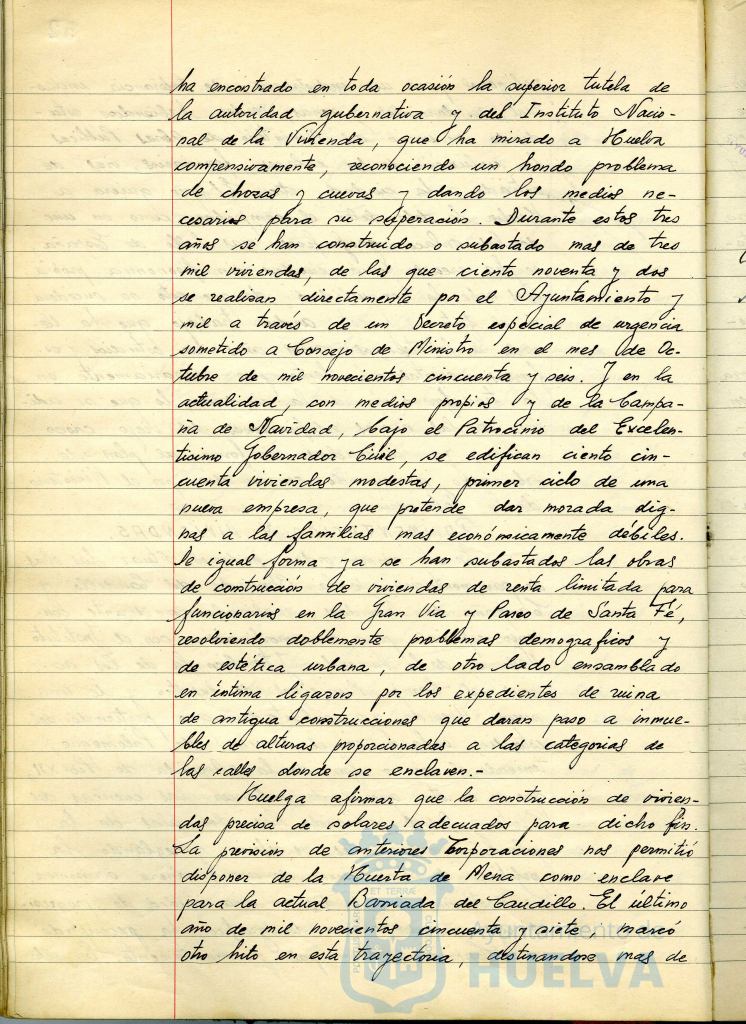 ha encostrado en toda ocasión la superior tutela de
la autoridad gubernativa y del Instituto Nacio-
nal de la Vivienda, que ha mirado a Huelva
compensivamente, reconociendo un hondo problema
de chozas y cuevas y dando los medios ne-
cesarios para su superación. Durante estos tres
años se han construido o subastado mas de tres
mil viviendas, de las que ciento noventa y dos
se realizan directamente por el Ayuntamiento y
mil a través de un Decreto especial de urgencia
sometido a Consejo de Ministro en el mes de Oc-
tubre de mil novecientos cincuenta y seis. Y en la
actualidad, con medios propios y de la Campa-
ña de Navidad, bajo el Patrocinio del Excelen-
tisimo Gobernador Civil, se edifican ciento cin-
cuenta viviendas modestas, primer ciclo de una
nueva empresa, que pretende dar morada dig-
nas a las familias mas económicamente débiles.
De igual forma ya se han subastados las obras
de construcción de viviendas de renta limitada para
funcionarios en la Gran Via y Paseo de Santa Fé,
resolviendo doblemente problemas demograficos y
de estética urbana, de otro lado ensamblado
en íntima ligazon por los expedientes de ruina
de antigua construcciones que daran paso a inmue-
bles de alturas proporcionadas a las categorias de
las calles donde se enclaven.-
Huelga afirmar que la construcción de vivien-
das precisa de solares adecuados para dicho fin.
La previsión de anteriores Corporaciones nos permitió
disponer de la Huerta de Mena como enclave
para la actual Barriada del Caudillo. El último
año de mil novecientos cincuenta y siete, marcó
otro hito en esta trayectoria, destinandose mas de
Ayuntamiento de
HUELVA